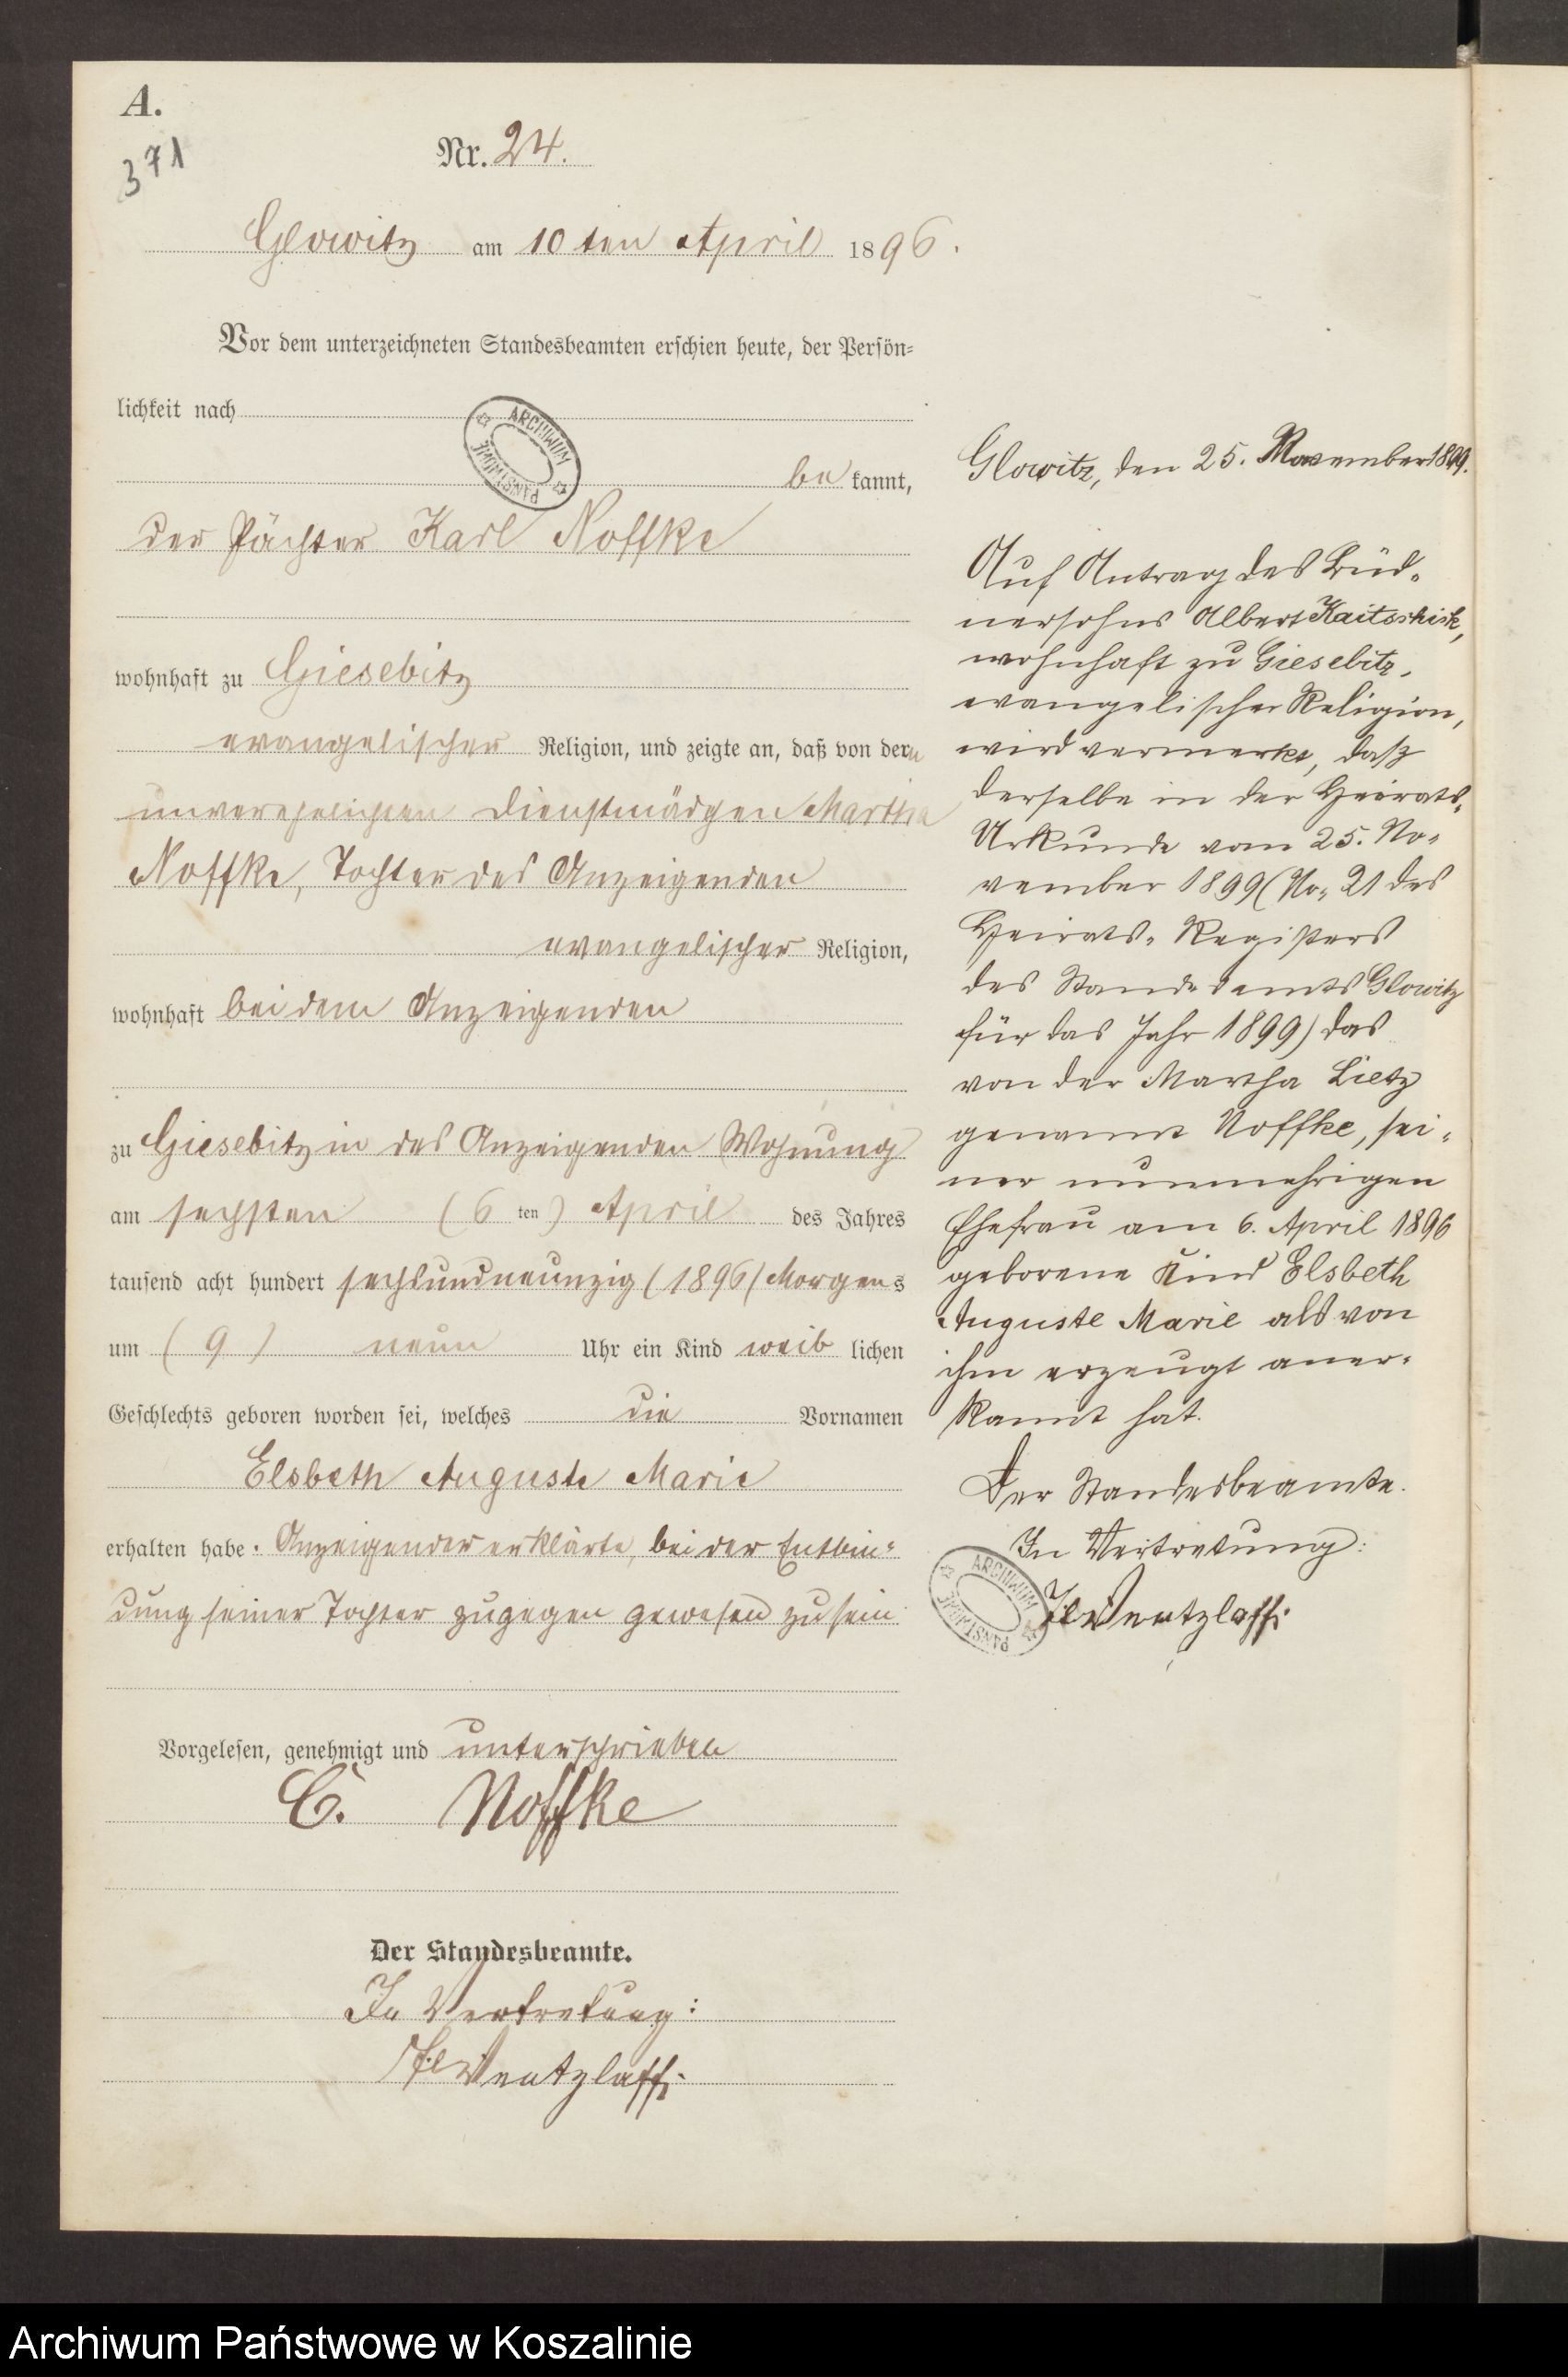 A.
371
Nr. 24.
Glowitz am 10ten April 1896.
Vor dem unterzeichneten Standesbeamten erschien heute, der Persön=
lichkeit nach
ARCHIWUM
PAŃSTWOWE
be kannt,
der Pächter Karl Noffke
wohnhaft zu Giesebitz
evangelischer Religion, und zeigte an, daß von der
unverehelichten Dienstmädgen Martha
Noffke, Tochter des Anzeigenden
evangelischer Religion,
wohnhaft bei dem Anzeigenden
zu Giesebitz in des Anzeigenden Wohnung
am sechsten (6 ten) April des Jahres
tausend acht hundert sechsundneunzig (1896) Morgens
um (9) neun Uhr ein Kind weib lichen
Geschlechts geboren worden sei, welches die Vornamen
Elsbeth Auguste Marie
erhalten habe. Anzeigender erklärte, bei der Entbin=
dung seiner Tochter zugegen gewesen zu sein
Vorgelesen, genehmigt und unterschrieben
C. Noffke
Der Standesbeamte.
In Vertretung:
Wentzlaff.
Glowitz, den 25. November 1899.
Auf Antrag des Büd=
nersohns Albert Kaitschick,
wohnhaft zu Giesebitz,
evangelischer Religion,
wird vermerkt, daß
derselbe in der Heirats=
Urkunde vom 25. No=
vember 1899 (No. 21 des
Heirats=Registers
des Standesamts Glowitz
für das Jahr 1899) das
von der Martha Lietz
genannt Noffke, sei=
ner nunmehrigen
Ehefrau am 6. April 1896
geborene Kind Elsbeth
Auguste Marie als von
ihm erzeugt aner=
kannt hat.
Der Standesbeamte.
In Vertretung:
ARCHIWUM
PAŃSTWOWE
Wentzlaff.
Archiwum Państwowe w Koszalinie